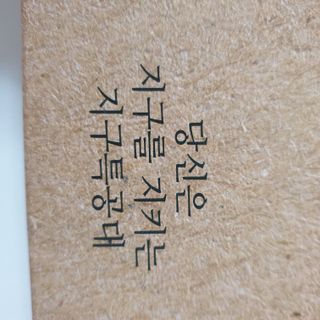 당신은
지구를 지키는
지구특공대